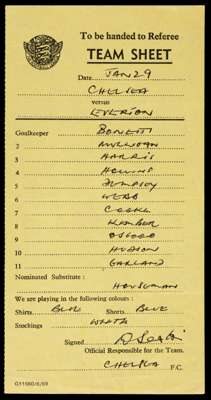 To be handed to Referee
TEAM SHEET
Date JAN 29
CHELSEA
versus
EVERTON
Goalkeeper BONETTI
2 MULLIGAN
3 HARRIS
4 HOLLINS
5 DEMPSEY
6 WEBB
7 COOKE
8 KEMBER
9 OSGOOD
10 HUDSON
11 GARLAND
Nominated Substitute :
HOUSEMAN
We are playing in the following colours :
Shirts BLUE Shorts BLUE
Stockings WHITE
Signed D Sexton
Official Responsible for the Team.
CHELSEA F.C.